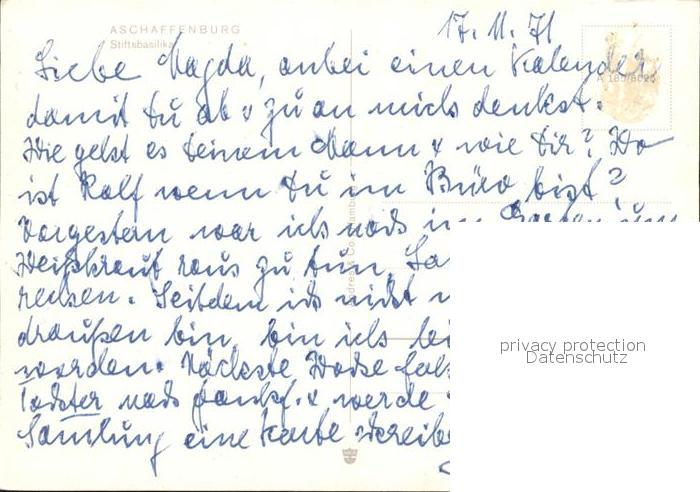 ASCHAFFENBURG
Stiftsbasilika
17. 11. 71
Liebe Magda, anbei einen Kalender
damit Du ab u zu an mich denkst.
Wie geht es Deinem Mann u wie Dir? Wo
ist Ralf wenn Du im Büro bist?
Vorgestern war ich noch im Garten um
Weißkraut raus zu tun.
rechen. Seitdem ich nicht
draußen bin, bin ich
worden. Nächste Woche
Tochter nach u werde
Samlung eine Karte
privacy protection
Datenschutz